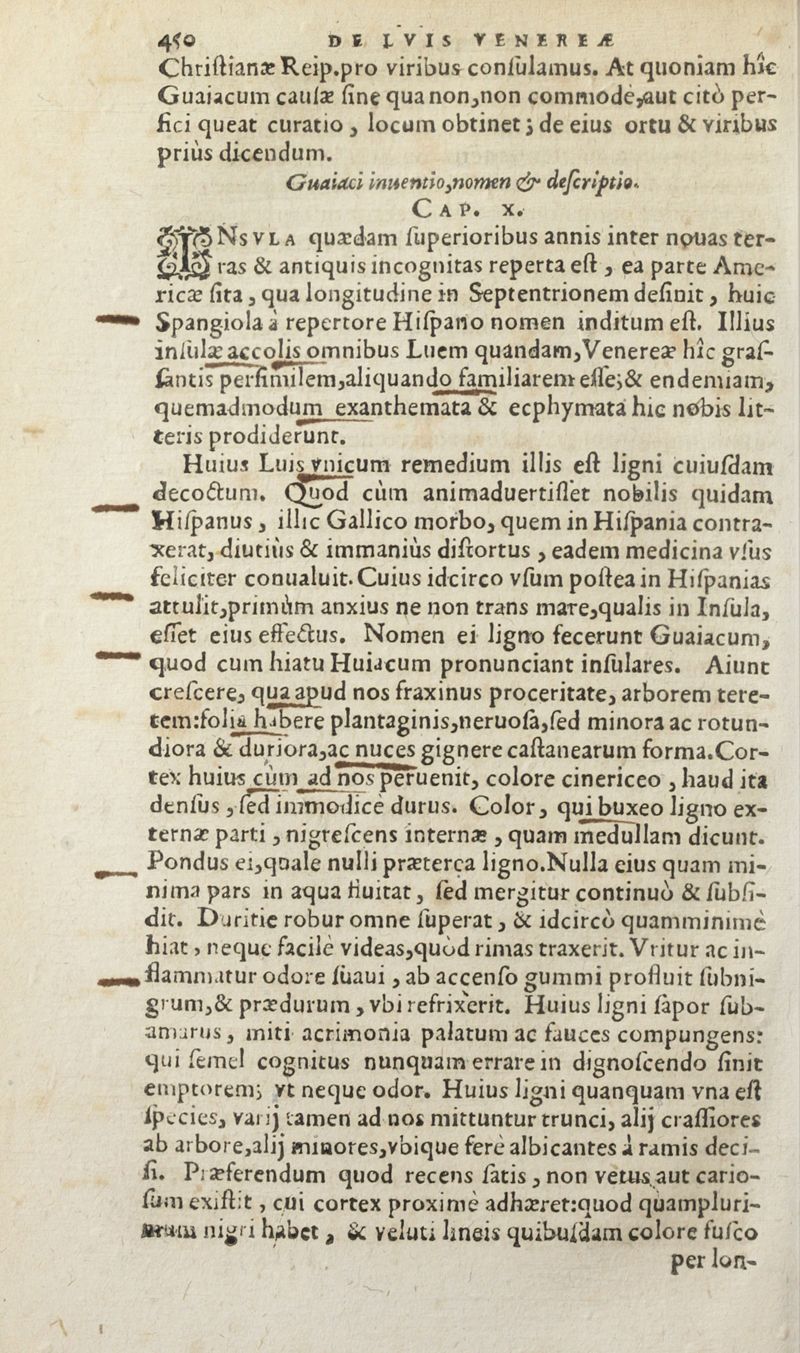 450 DE LVIS VENEREÆ
Chriſtianæ Reip.pro viribus conſulamus. At quoniam hîc
Guaiacum cauſæ ſine qua non,non commodè,aut citò per-
fici queat curatio , locum obtinet ; de eius ortu & viribus
priùs dicendum.
Guaiaci inuentio,nomen & deſcriptio.
CAP. X.
INSVLA quædam ſuperioribus annis inter nouas ter-
ras & antiquis incognitas reperta eſt , ea parte Ame-
ricæ ſita , qua longitudine in Septentrionem deſinit , huic
Spangiola à repertore Hiſpano nomen inditum eſt. Illius
inſulæ accolis omnibus Luem quandam,Venereæ hîc graſ-
ſantis perſimilem,aliquando familiarem eſſe;& endemiam,
quemadmodum exanthemata & ecphymata hic nobis lit-
teris prodiderunt.
Huius Luis vnicum remedium illis eſt ligni cuiuſdam
decoctum. Quod cùm animaduertiſſet nobilis quidam
Hiſpanus , illic Gallico morbo, quem in Hiſpania contra-
xerat, diutiùs & immaniùs diſtortus , eadem medicina vſus
feliciter conualuit. Cuius idcirco vſum poſtea in Hiſpanias
attulit,primùm anxius ne non trans mare,qualis in Inſula,
eſſet eius effectus. Nomen ei ligno fecerunt Guaiacum,
quod cum hiatu Huiacum pronunciant inſulares. Aiunt
creſcere, qua apud nos fraxinus proceritate, arborem tere-
tem:folia habere plantaginis,neruoſa,ſed minora ac rotun-
diora & duriora,ac nuces gignere caſtanearum forma.Cor-
tex huius cùm ad nos peruenit, colore cinericeo , haud ita
denſus , ſed immodicè durus. Color, qui buxeo ligno ex-
ternæ parti , nigreſcens internæ , quam medullam dicunt.
Pondus ei,quale nulli præterea ligno.Nulla eius quam mi-
nima pars in aqua fluitat, ſed mergitur continuò & ſubſi-
dit. Duritie robur omne ſuperat , & idcircò quamminimè
hiat , neque facilè videas,quòd rimas traxerit. Vritur ac in-
flammatur odore ſuaui , ab accenſo gummi profluit ſubni-
grum,& prædurum , vbi refrixerit. Huius ligni ſapor ſub-
amarus, miti acrimonia palatum ac fauces compungens:
qui ſemel cognitus nunquam errare in dignoſcendo ſinit
emptorem; vt neque odor. Huius ligni quanquam vna eſt
ſpecies, varij tamen ad nos mittuntur trunci, alij craſſiores
ab arbore,alij minores,vbique ferè albicantes à ramis deci-
ſi. Præferendum quod recens ſatis , non vetus aut cario-
ſum exiſtit , cui cortex proximè adhæret:quod quampluri-
mum nigri habet , & veluti lineis quibuſdam colore fuſco
per lon-